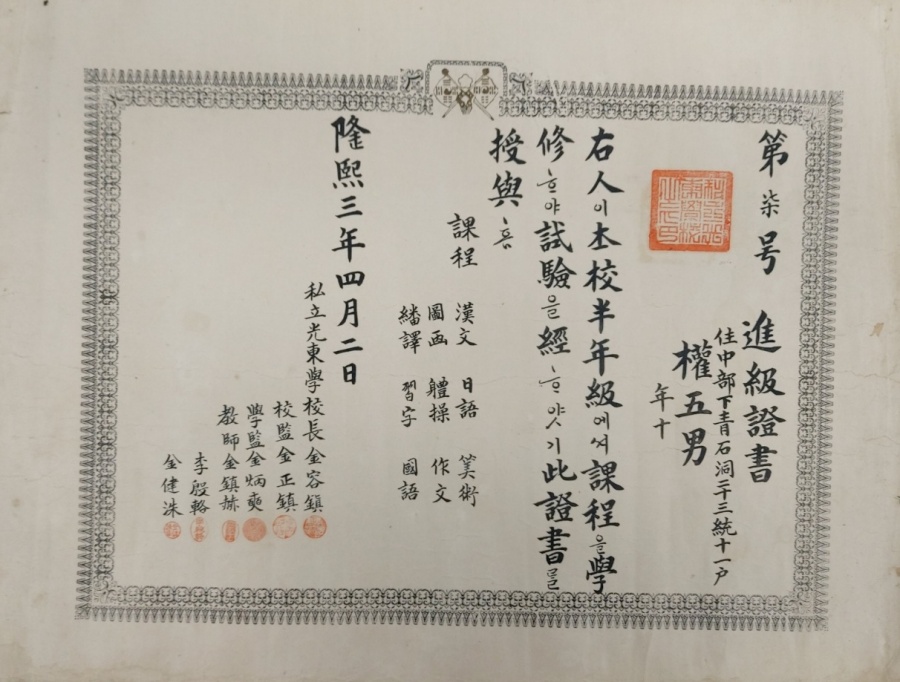 第柒号
進級證書
住中部下青石洞二十三統十一戶
權五男
年十
右人이本校半年級에셔課程을學
修ᄒᆞ야試驗을經ᄒᆞ얏기此證書를
授與홈
課程
漢文 日語 筭術
圖画 體操 作文
繙譯 習字 國語
隆熙三年四月二日
私立光東學校長金容鎭
校監金正鎭
學監金炳奭
教師金鎭赫
李殷輅
金健洙